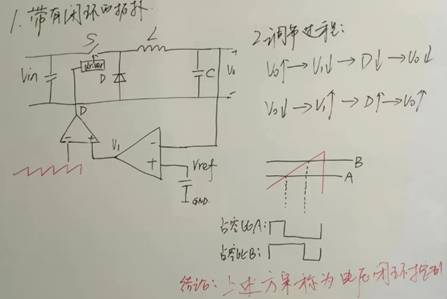 1. 带有闭环的拓扑
2. 调节过程:
S L
Vin driver D C Vo
Vo↑→V1↓→D↓→Vo↓
Vo↓→V1↑→D↑→Vo↑
D
V1
- +
-
+
Vref
GND
B
A
占空比A:
占空比B:
结论: 上述方案称为电压闭环控制